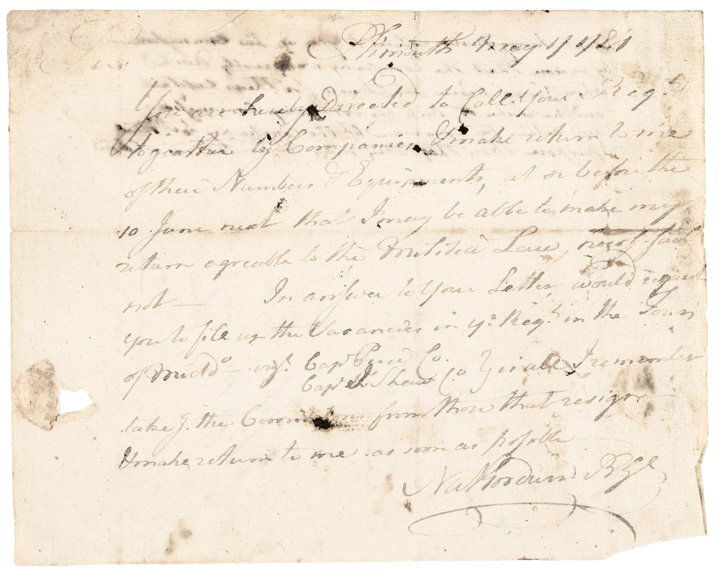 Plimouth May 17 1781
You are hereby Directed to Call your Regt
togeather by Companies, & make return to me
of their Numbers & Equipments, at or before the
10 June next that I may be able to make my
return agreable to the Militia Law, fail
not — In answer to your Letter, would
you to file up the Vacancies in yr Regt in the Town
of Midd° viz. Capt Co.
Capt Shaw Co remember
take the from those that resign
& make return to me as soon as possible
Nat Goodwin